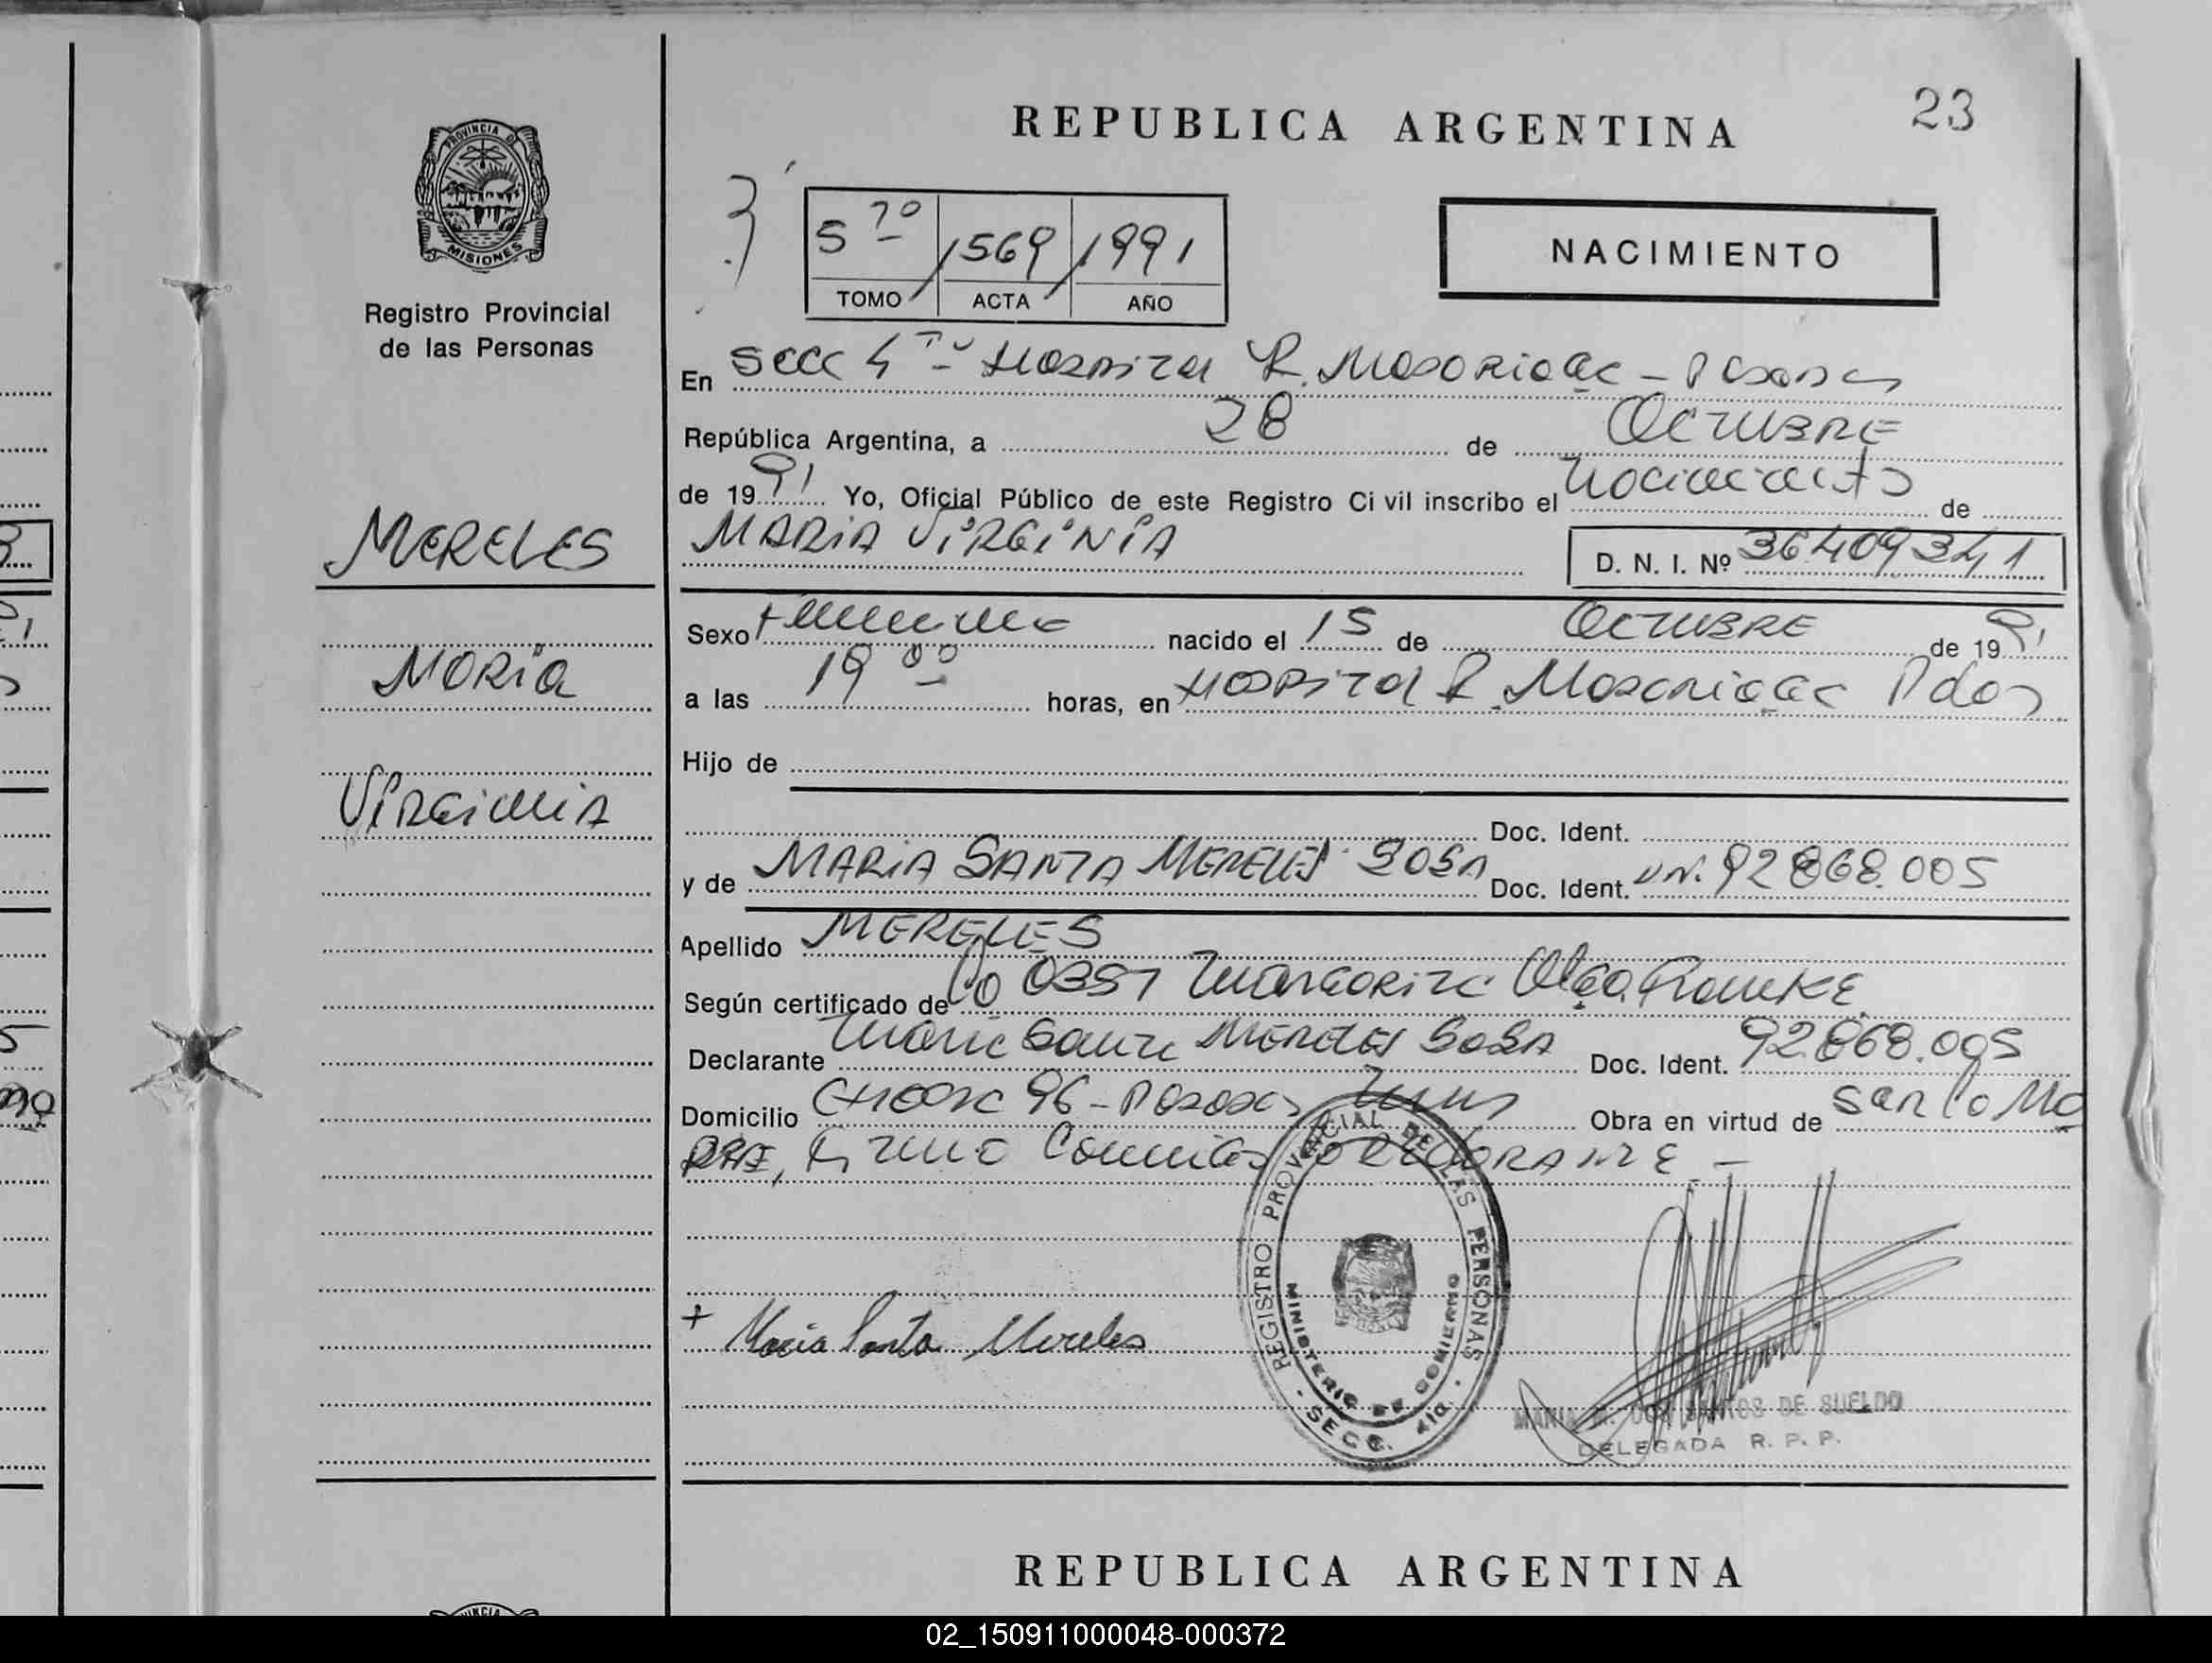 23
REPUBLICA ARGENTINA
PROVINCIA DE
MISIONES
Registro Provincial
de las Personas
5to 1569 1991
TOMO ACTA AÑO
NACIMIENTO
En Secc 4ta Hospital R. Madariaga - Posadas
República Argentina, a 28 de OCTUBRE
de 1991 Yo, Oficial Público de este Registro Civil inscribo el Nacimiento de
MARIA VIRGINIA
D. N. I. Nº 36409341
MERELES
Maria
Virginia
Sexo Femenino nacido el 15 de OCTUBRE de 1991
a las 19 00 horas, en Hospital R. Madariaga Pdas
Hijo de
Doc. Ident.
y de MARIA SANTA MERELES SOSA Doc. Ident. DNI. 92868.005
Apellido MERELES
Según certificado de 0351 Margarita Olga
Declarante Maria Santa MERELES SOSA Doc. Ident. 92.868.005
Domicilio 96 - Posadas Obra en virtud de ser la MA
DRE, Firma Conmigo la DECLARANTE -
+ Maria Santa Mereles
REGISTRO PROVINCIAL DE LAS PERSONAS
MINISTERIO DE GOBIERNO
SECC. 4ta.
MARIA DOS SANTOS DE SUELDO
DELEGADA R. P. P.
REPUBLICA ARGENTINA
02_150911000048-000372